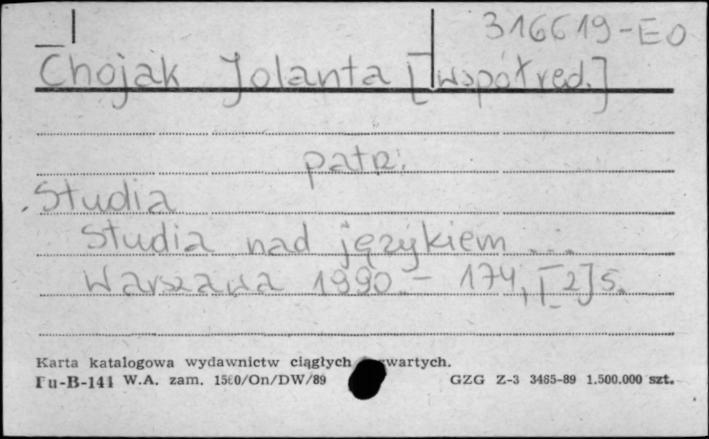 316619-EO
Chojak Jolanta [współred.]
patrz:
Studia
Studia nad językiem ...
Warszawa 1990. - 174, [2] s.
Karta katalogowa wydawnictw ciągłych zwartych.
Pu-B-141 W.A. zam. 1560/On/DW/89 GZG Z-3 3485-89 1.500.000 szt.